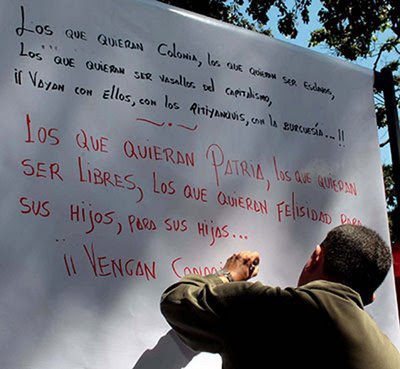 Los que quieran Colonia, los que quieran ser esclavos,
Los que quieran ser vasallos del capitalismo,
¡¡ Vayan con ellos, con los Pitiyanquis, con la burguesía...!!
Los que quieran Patria, los que quieran
ser libres, los que quieran felisidad para
sus hijos, para sus hijas...
¡¡ Vengan